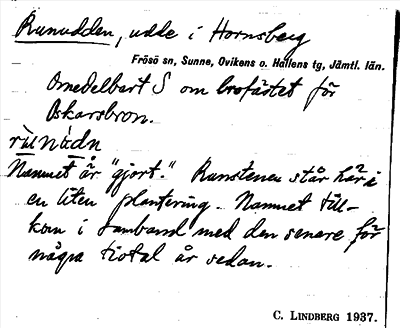 Runudden, udde i Hornsberg
Frösö sn, Sunne, Ovikens o. Hallens tg, Jämtl. län.
Omedelbart S om brofästet för
Oskarsbron.
rùnùdn
Namnet är "gjort." Runstenen står här i
en liten plantering. Namnet till-
kom i samband med den senare för
några tiotal år sedan.
C. LINDBERG 1937.